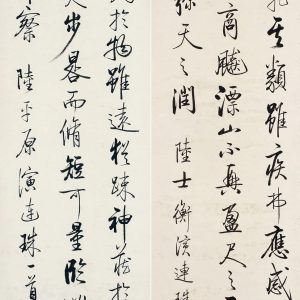 其類雖疾弗應感
商飈漂山不興盈尺之
彌天之潤 陸士衡演連珠
於物雖遠猶疎神藏於
天步晷而脩短可量臨
察 陸平原演連珠一首